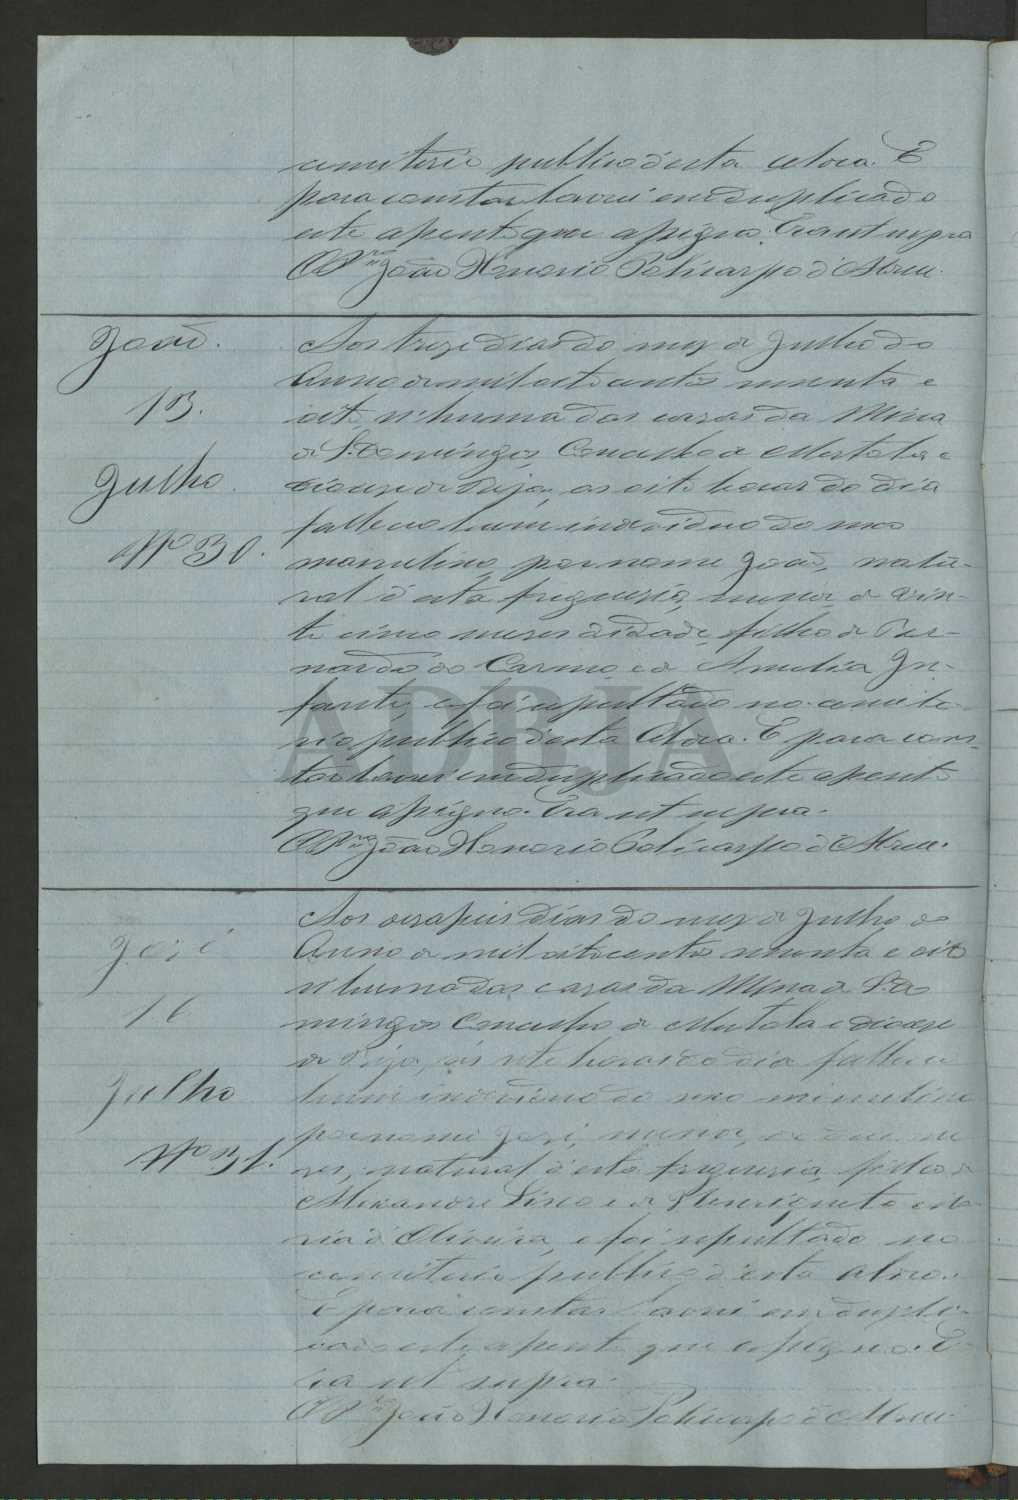 cemiterio publico d'esta aldea. E
para constar lavrei em duplicado
este assento que assigno. Era ut supra
O Pr.or João Honorio Policarpo d'Abreu.
João.
13.
Julho.
Nº 30.
Aos treze dias do mez de Julho do
Anno de mil oito centos noventa e
oito, n'huma das cazas da Mina
de S. Domingos, Concelho de Mertola e
diocese de Beja, as oito horas do dia
falleceu hum individuo do sexo
masculino, por nome João, natu-
ral d'esta freguesia, menor de vin-
te cinco mezes d'idade, filho de Ber-
nardo do Carmo, e de Amelia In-
fante, e foi sepultado no cemite-
rio publico d'esta aldea. E para cons-
tar lavrei em duplicado este assento
que assigno. Era ut supra.
O Pr.or João Honorio Policarpo d'Abreu.
José
16
Julho
Nº 31.
Aos dezaseis dias do mez de Julho do
Anno de mil oitocentos noventa e oito
n'huma das cazas da Mina de S. Do
mingos Concelho de Mertola e diocese
de Beja, ás sete horas do dia falleceu
hum individuo do sexo masculino
por nome José, menor, de me
zes, natural d'esta freguesia, filho de
Alexandre e de Henriqueta
d'Oliveira, e foi sepultado no
cemiterio publico d'esta aldea.
E para constar lavrei em dupli-
cado este assento que assigno. E-
ra ut supra.
O Pr.or João Honorio Policarpo d'Abreu.
ADBJA